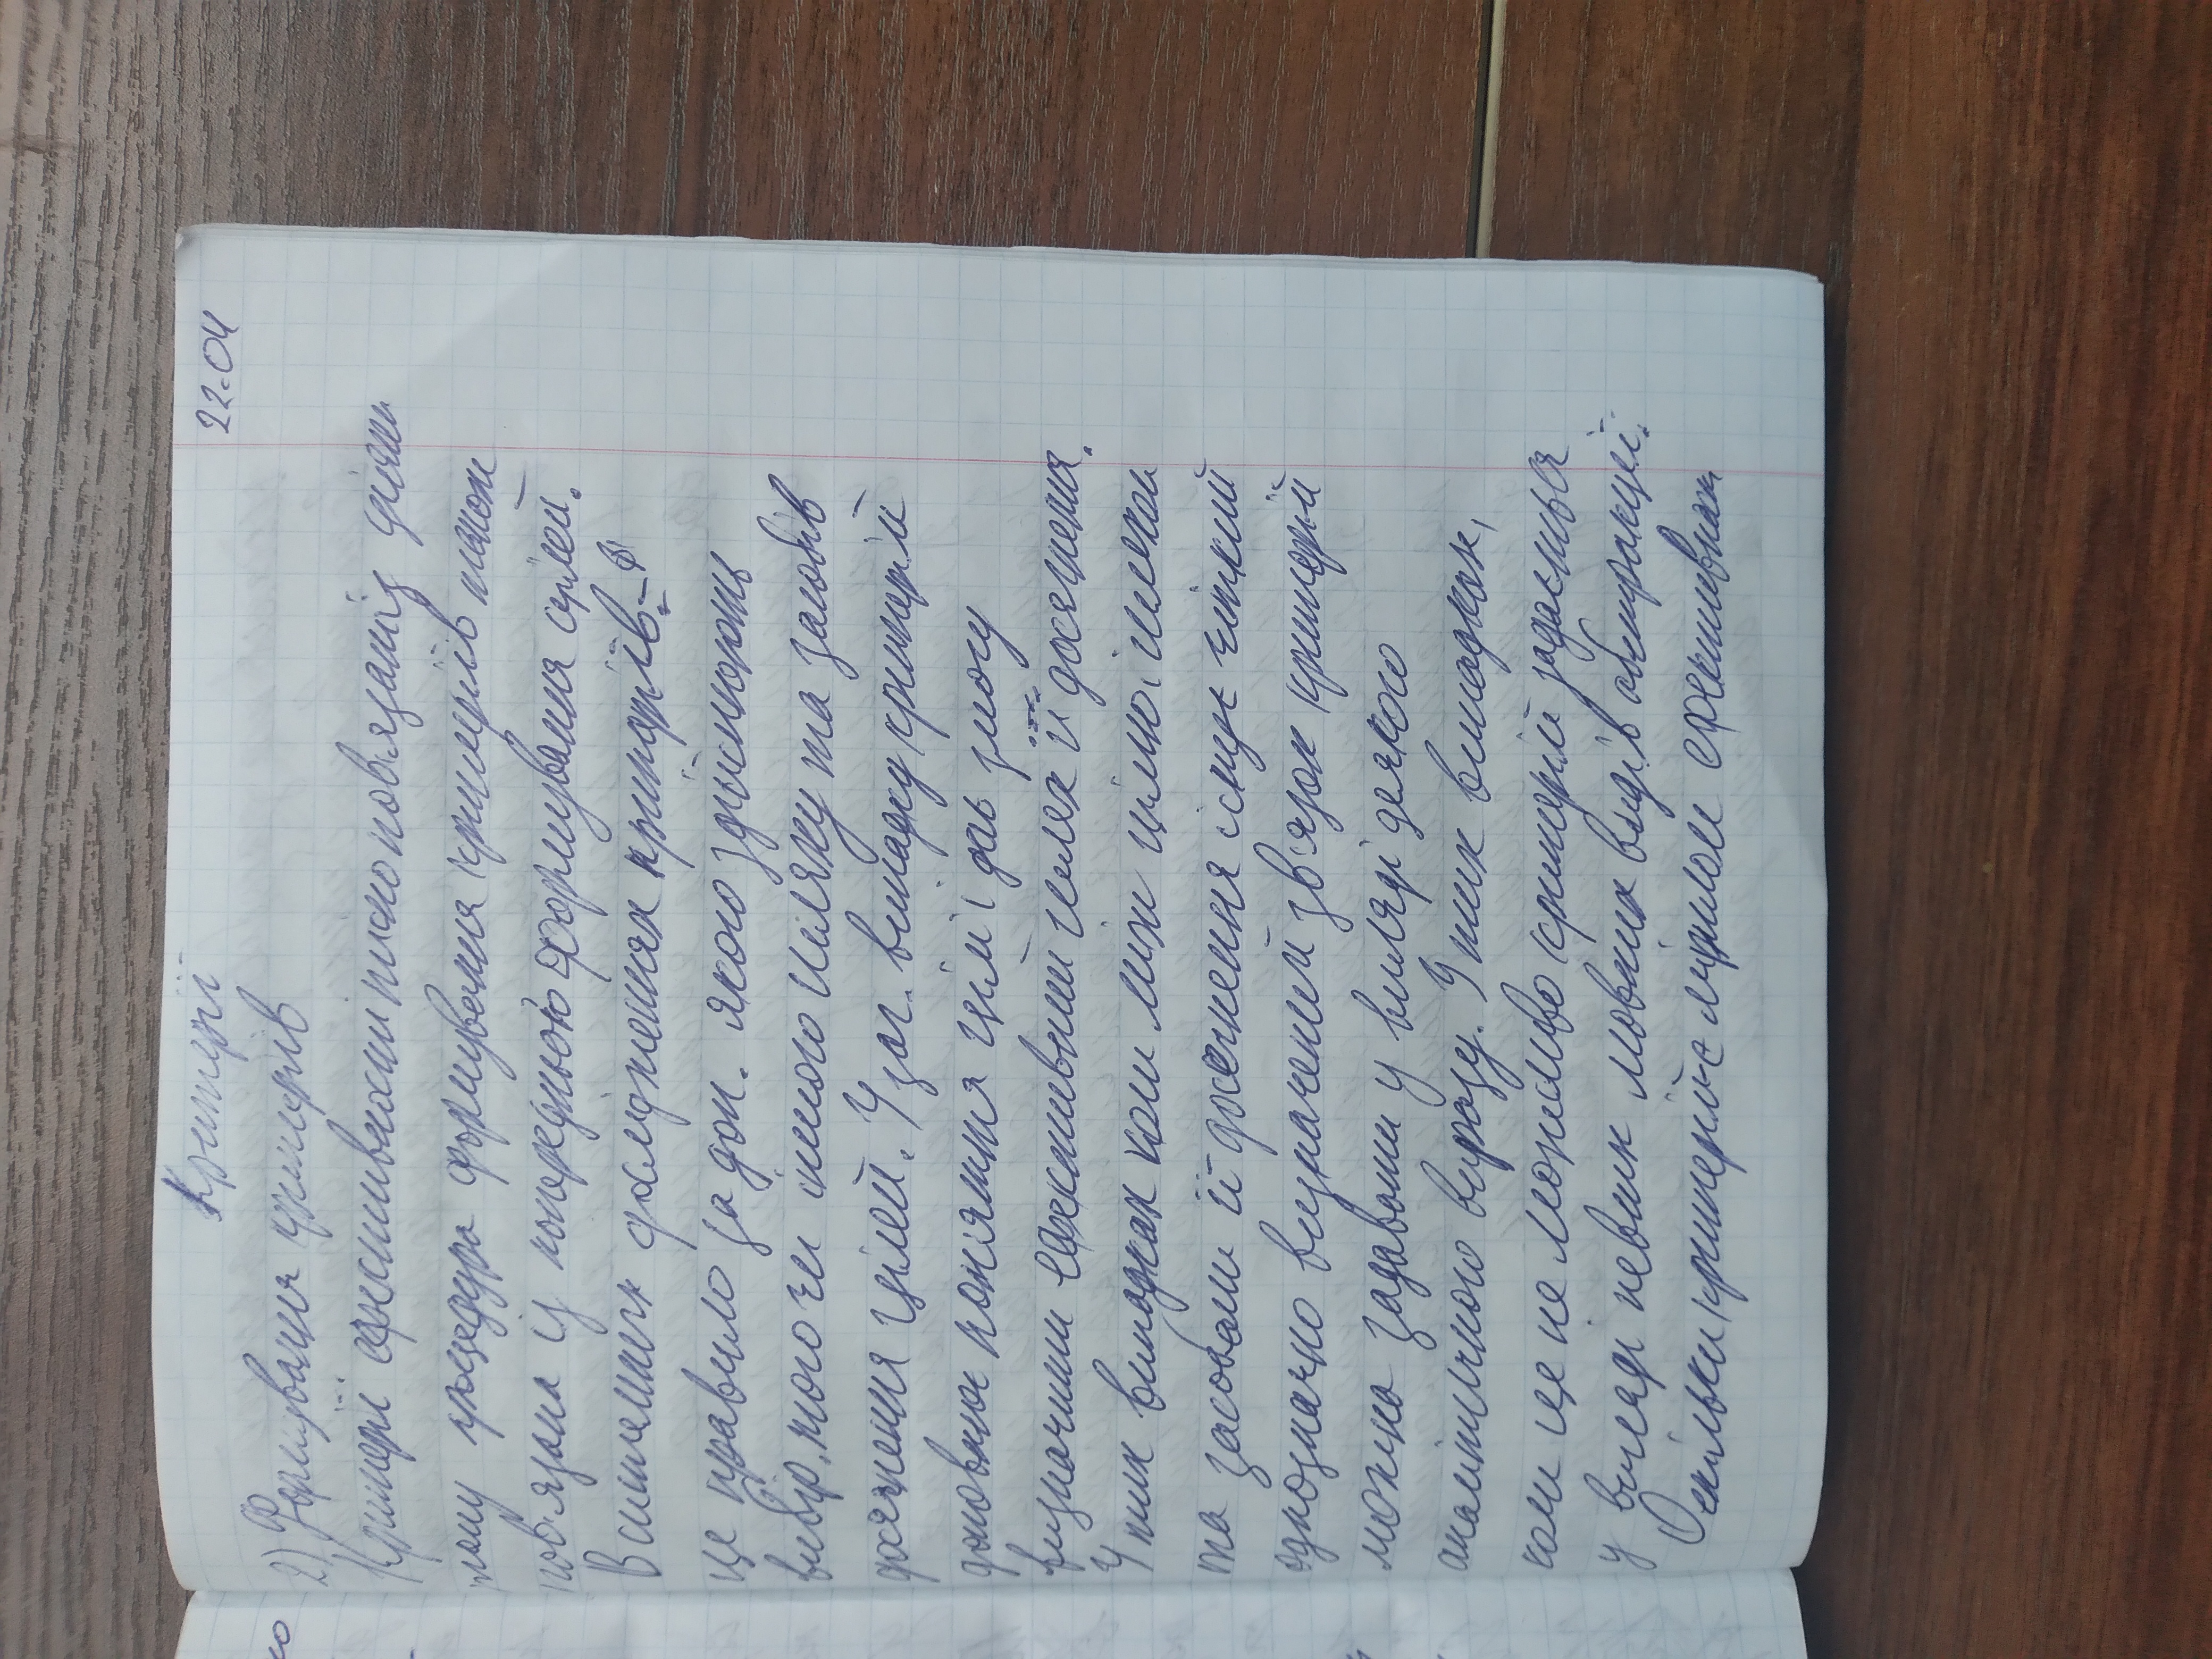 22.04
Критерії
2) Формування критеріїв
Критерії ефективности тісно пов'язані з цілями
тому процедура формування критеріїв також
пов'язана із процедурою формування цілей.
В системних дослідженнях критеріїв -
це правило за доп. якого здійснюють
вибір того чи іншого шляху та засобів
досягнення цілей. У заг. випадку критерій
доповнює поняття цілі і дає змогу
визначити ефективний шлях її досягнення.
У тих випадках коли між ціллю і шляхом
та засобами її досягнення існує чіткий
однозначно визначений зв'язок критерій
можна задавати у вигляді деякого
аналітичного виразу. У тих випадках,
коли це не можливо критерій задається
у вигляді певних мовних видів абстракції.
Оскільки критерій є мірилом ефективних